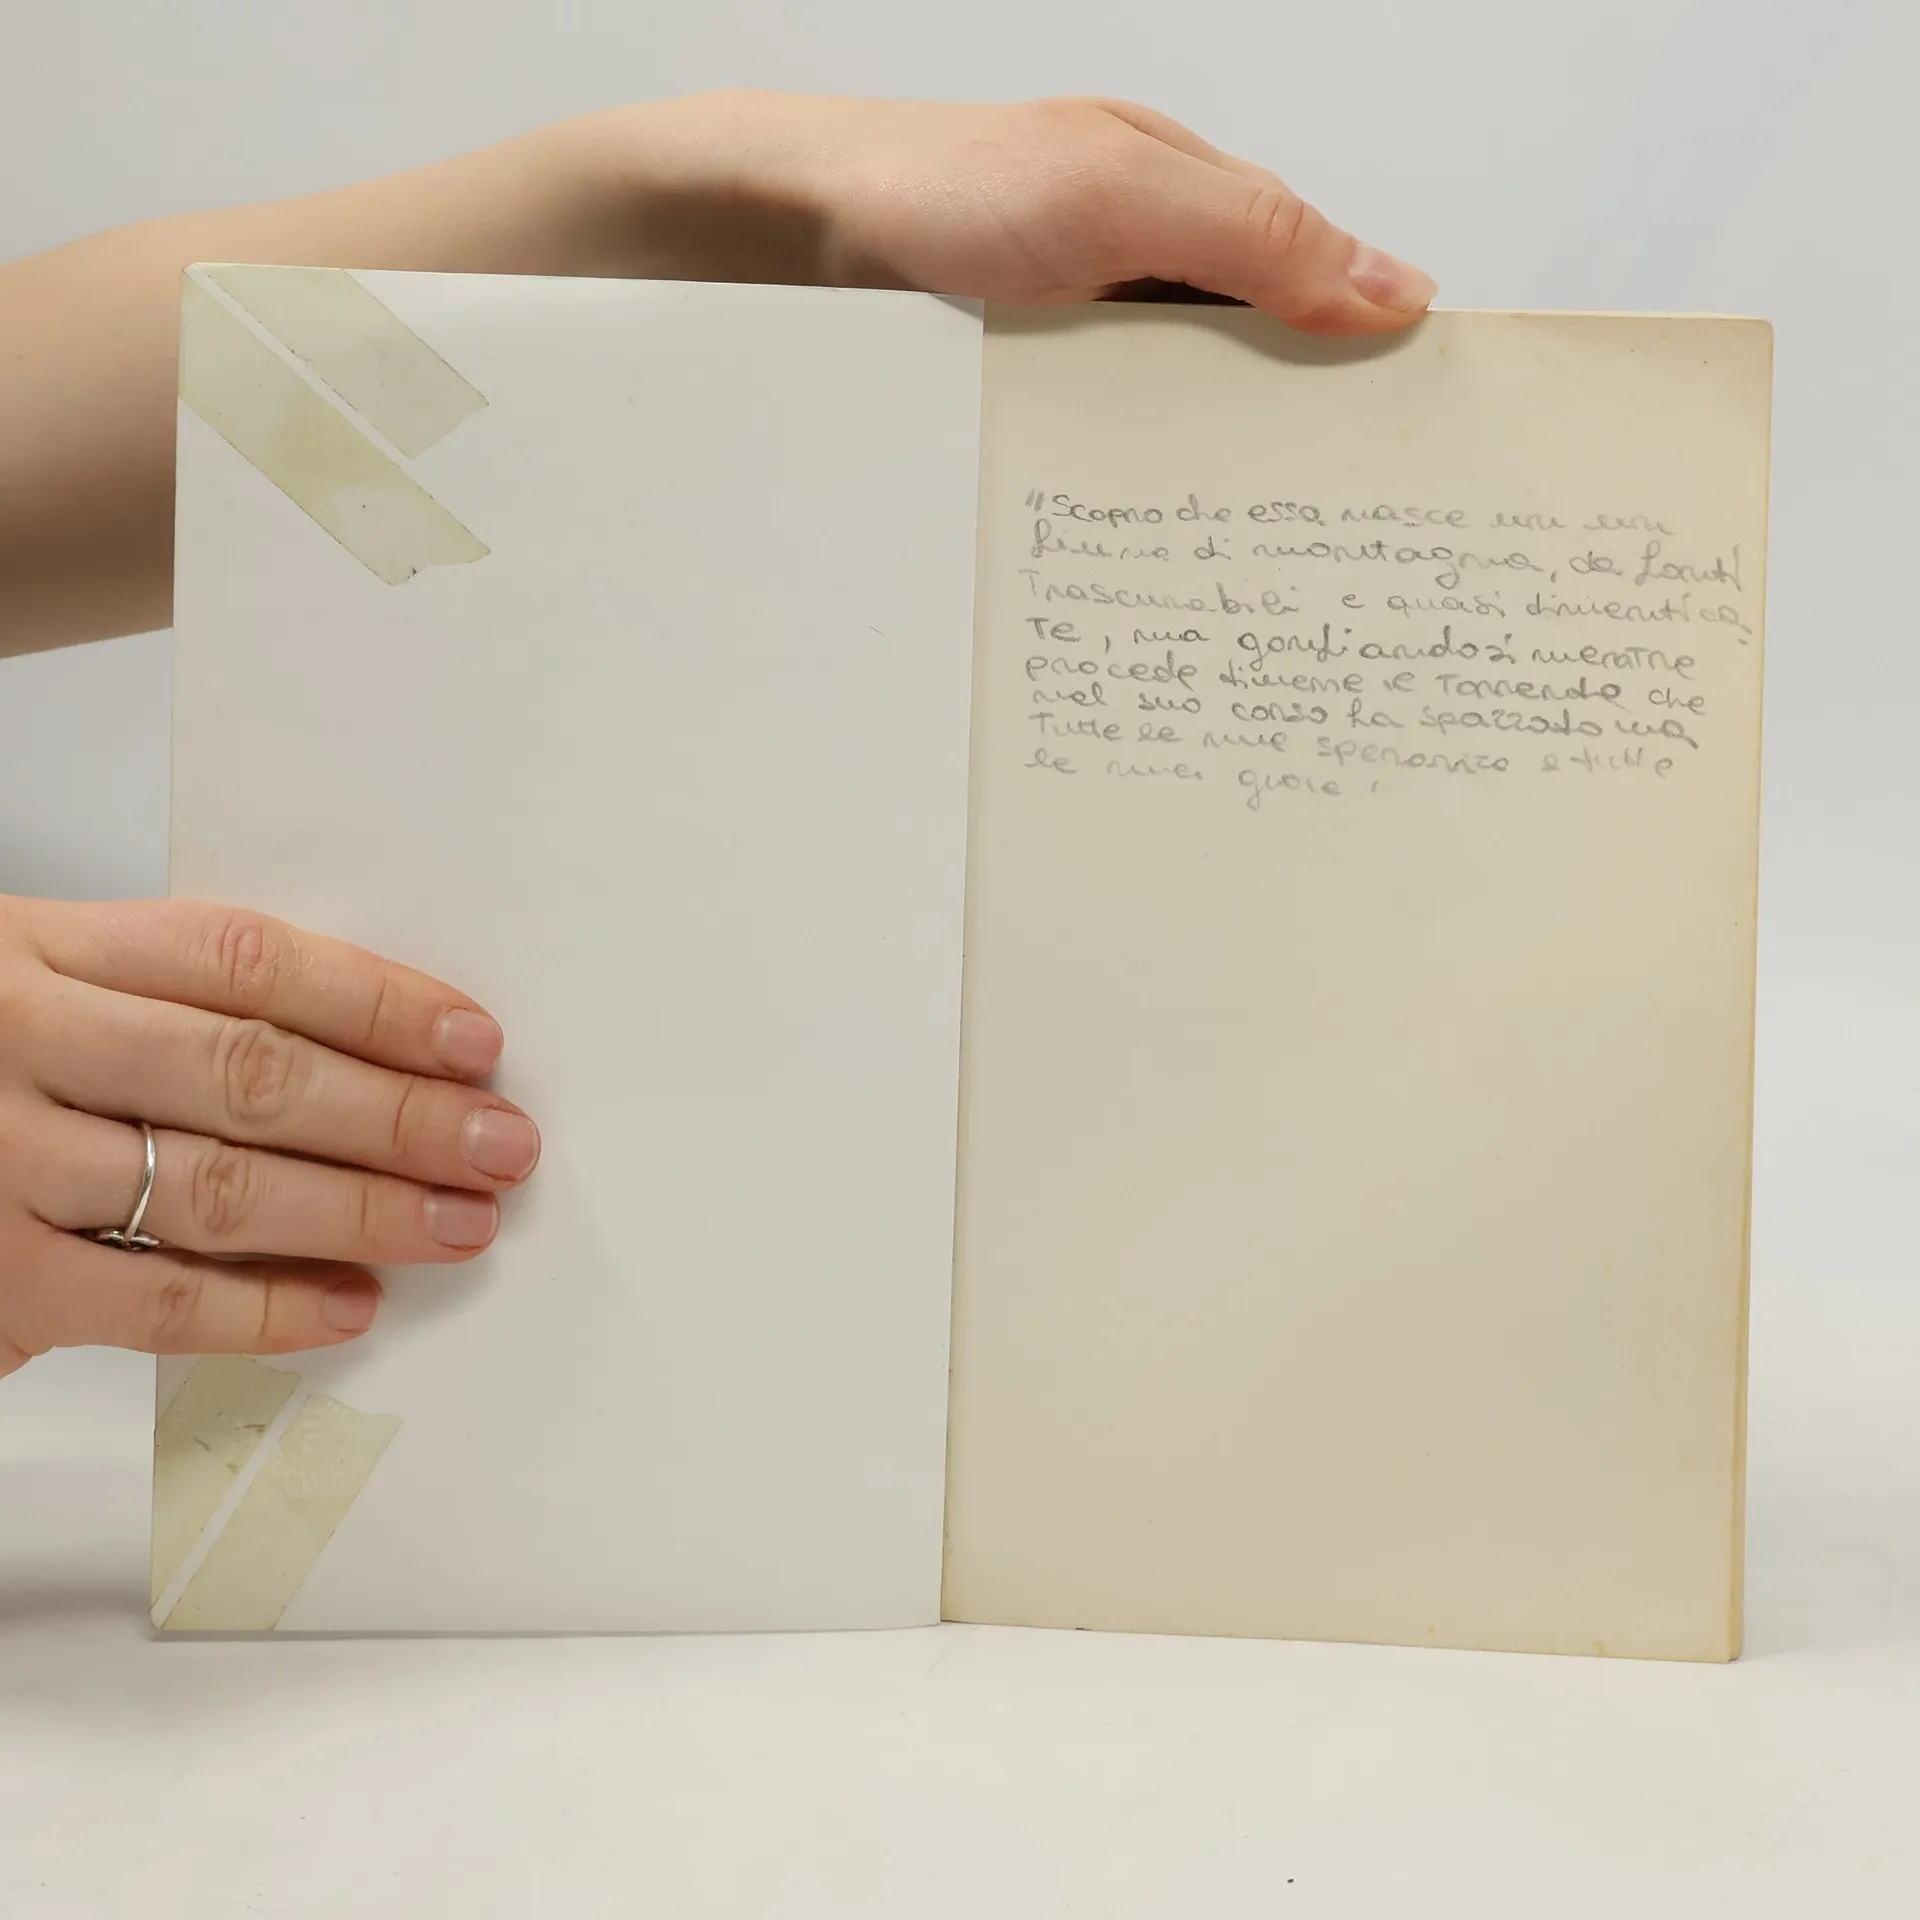 "Scopro che essa nasce come un
fiume di montagna, da fonti
Trascurabili e quasi dimentica
Te, ma gonfiandosi mentre
procede diviene il Torrente che
nel suo corso ha spazzato via
Tutte le mie speranze e tutte
le mie gioie"